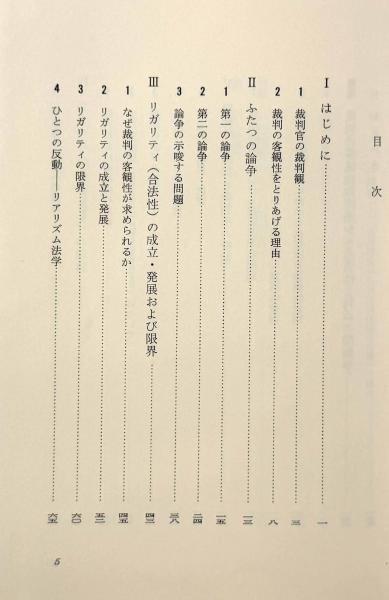 目次
Ⅰ はじめに……一
1 裁判官の裁判観……三
2 裁判の客観性をとりあげる理由……八
Ⅱ ふたつの論争……一三
1 第一の論争……一五
2 第二の論争……二四
3 論争の示唆する問題……三八
Ⅲ リガリティ（合法性）の成立・発展および限界……四三
1 なぜ裁判の客観性が求められるか……四五
2 リガリティの成立と発展……五二
3 リガリティの限界……六〇
4 ひとつの反動――リアリズム法学……六五
5